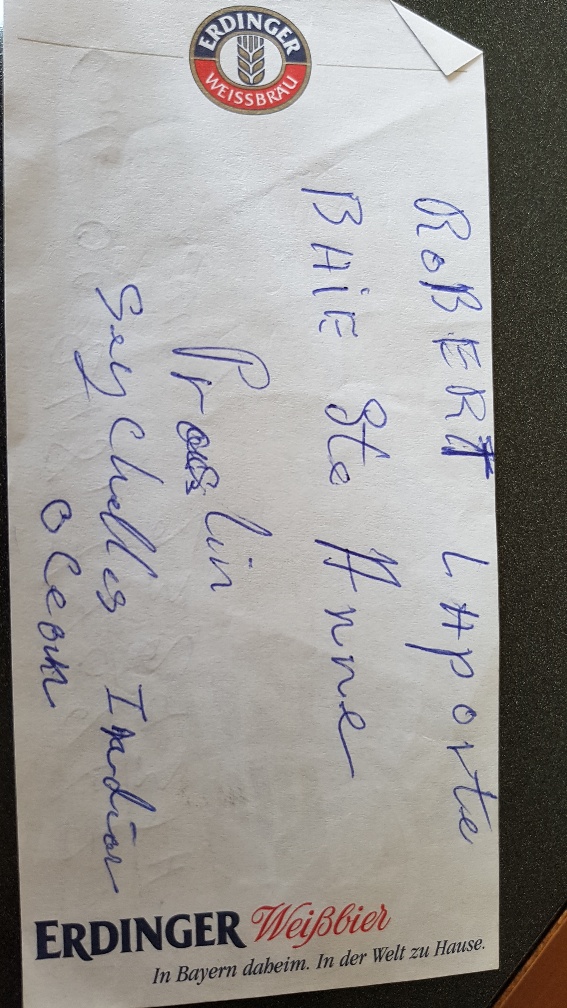 ERDINGER
WEISSBRÄU
ROBERT LAPorte
BAiE Ste Anne
Praslin
Seychelles Indian
Ocean
ERDINGER Weißbier
In Bayern daheim. In der Welt zu Hause.